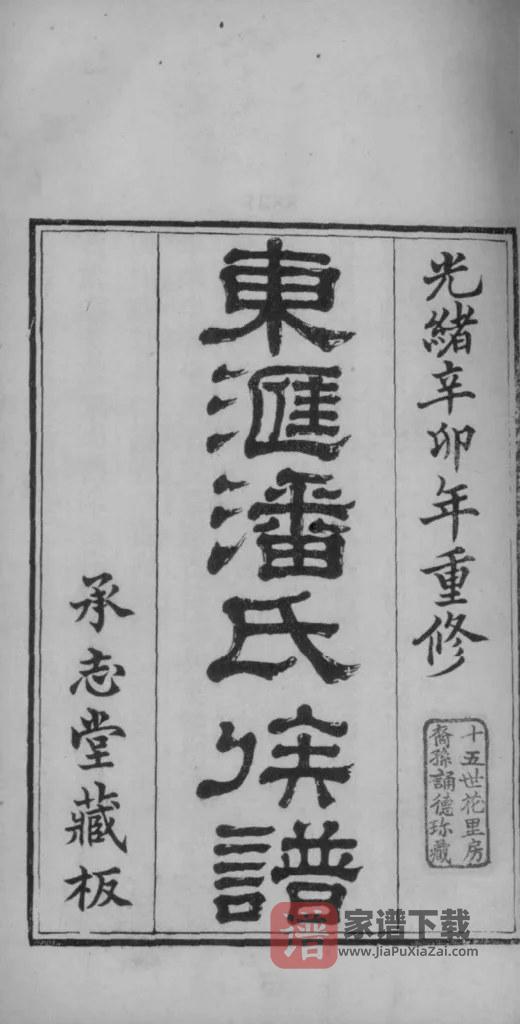 光緒辛卯年重修
十五世花里房
裔孫誦德珎藏
東滙潘氏族譜
承志堂藏板
譜
家谱下载
www.JiaPuXiaZai.com